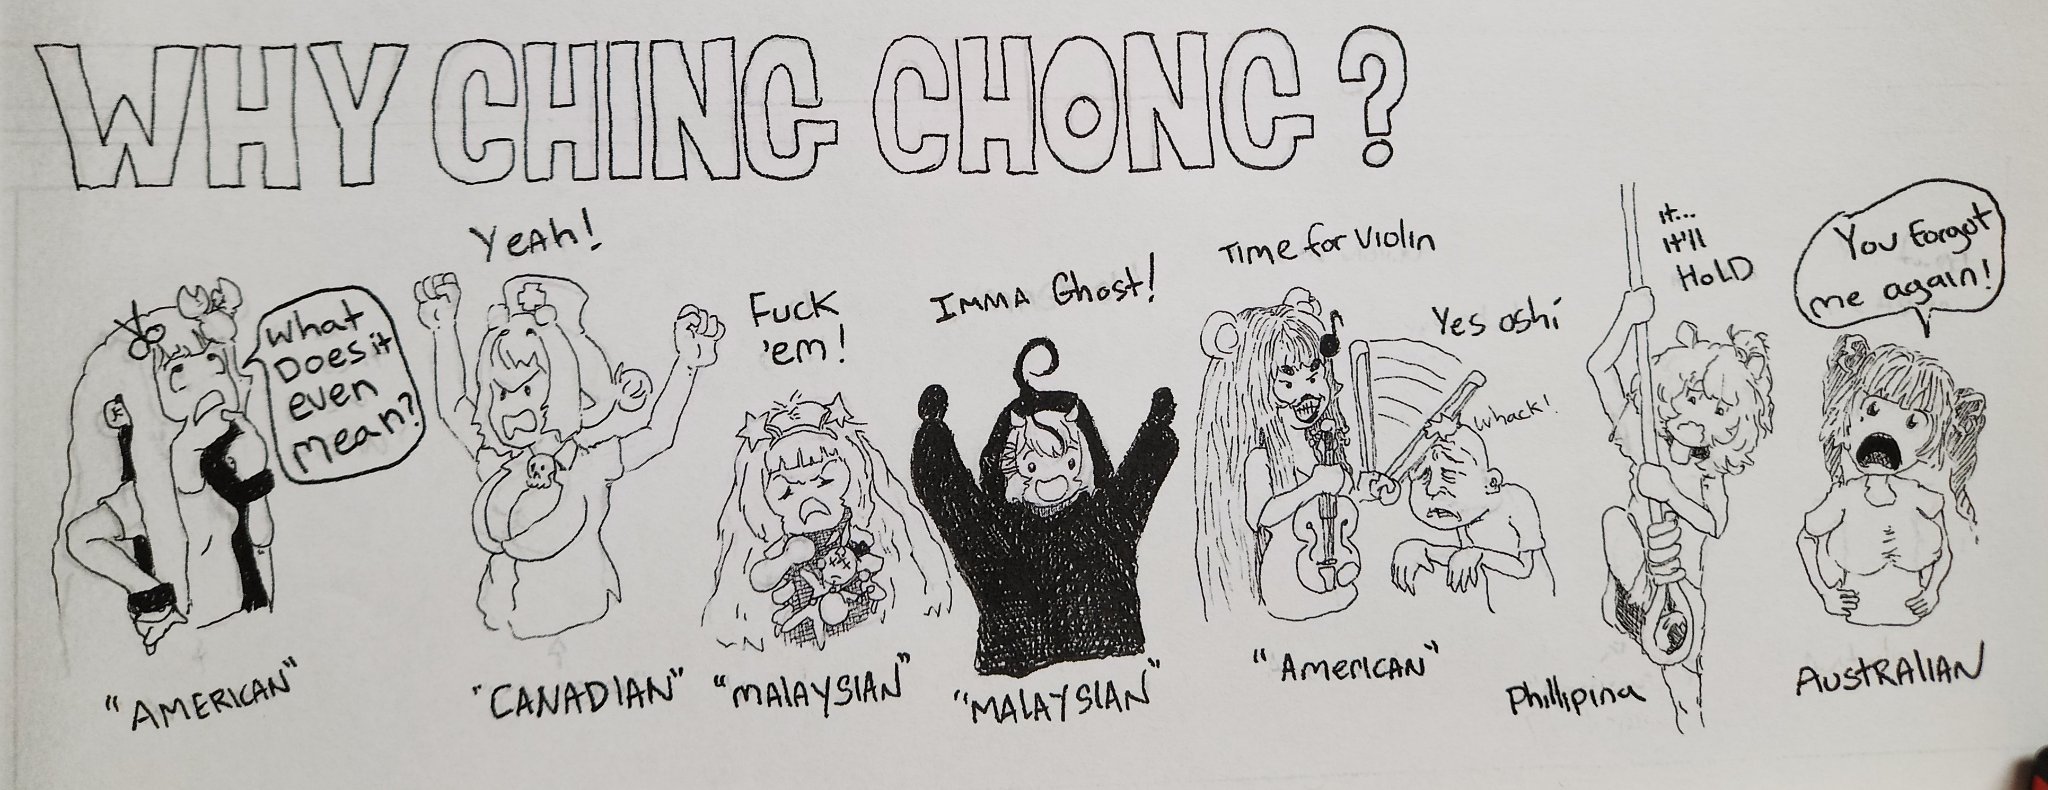 WHY CHING CHONG?
Yeah!
What
Does it
even
mean?
Fuck
'em!
Imma Ghost!
Time for Violin
Yes oshi
Whack!
it...
It'll
HOLD
You Forgot
me again!
"AMERICAN"
"CANADIAN"
"MALAYSIAN"
"MALAYSIAN"
"American"
Phillipina
AUSTRALIAN